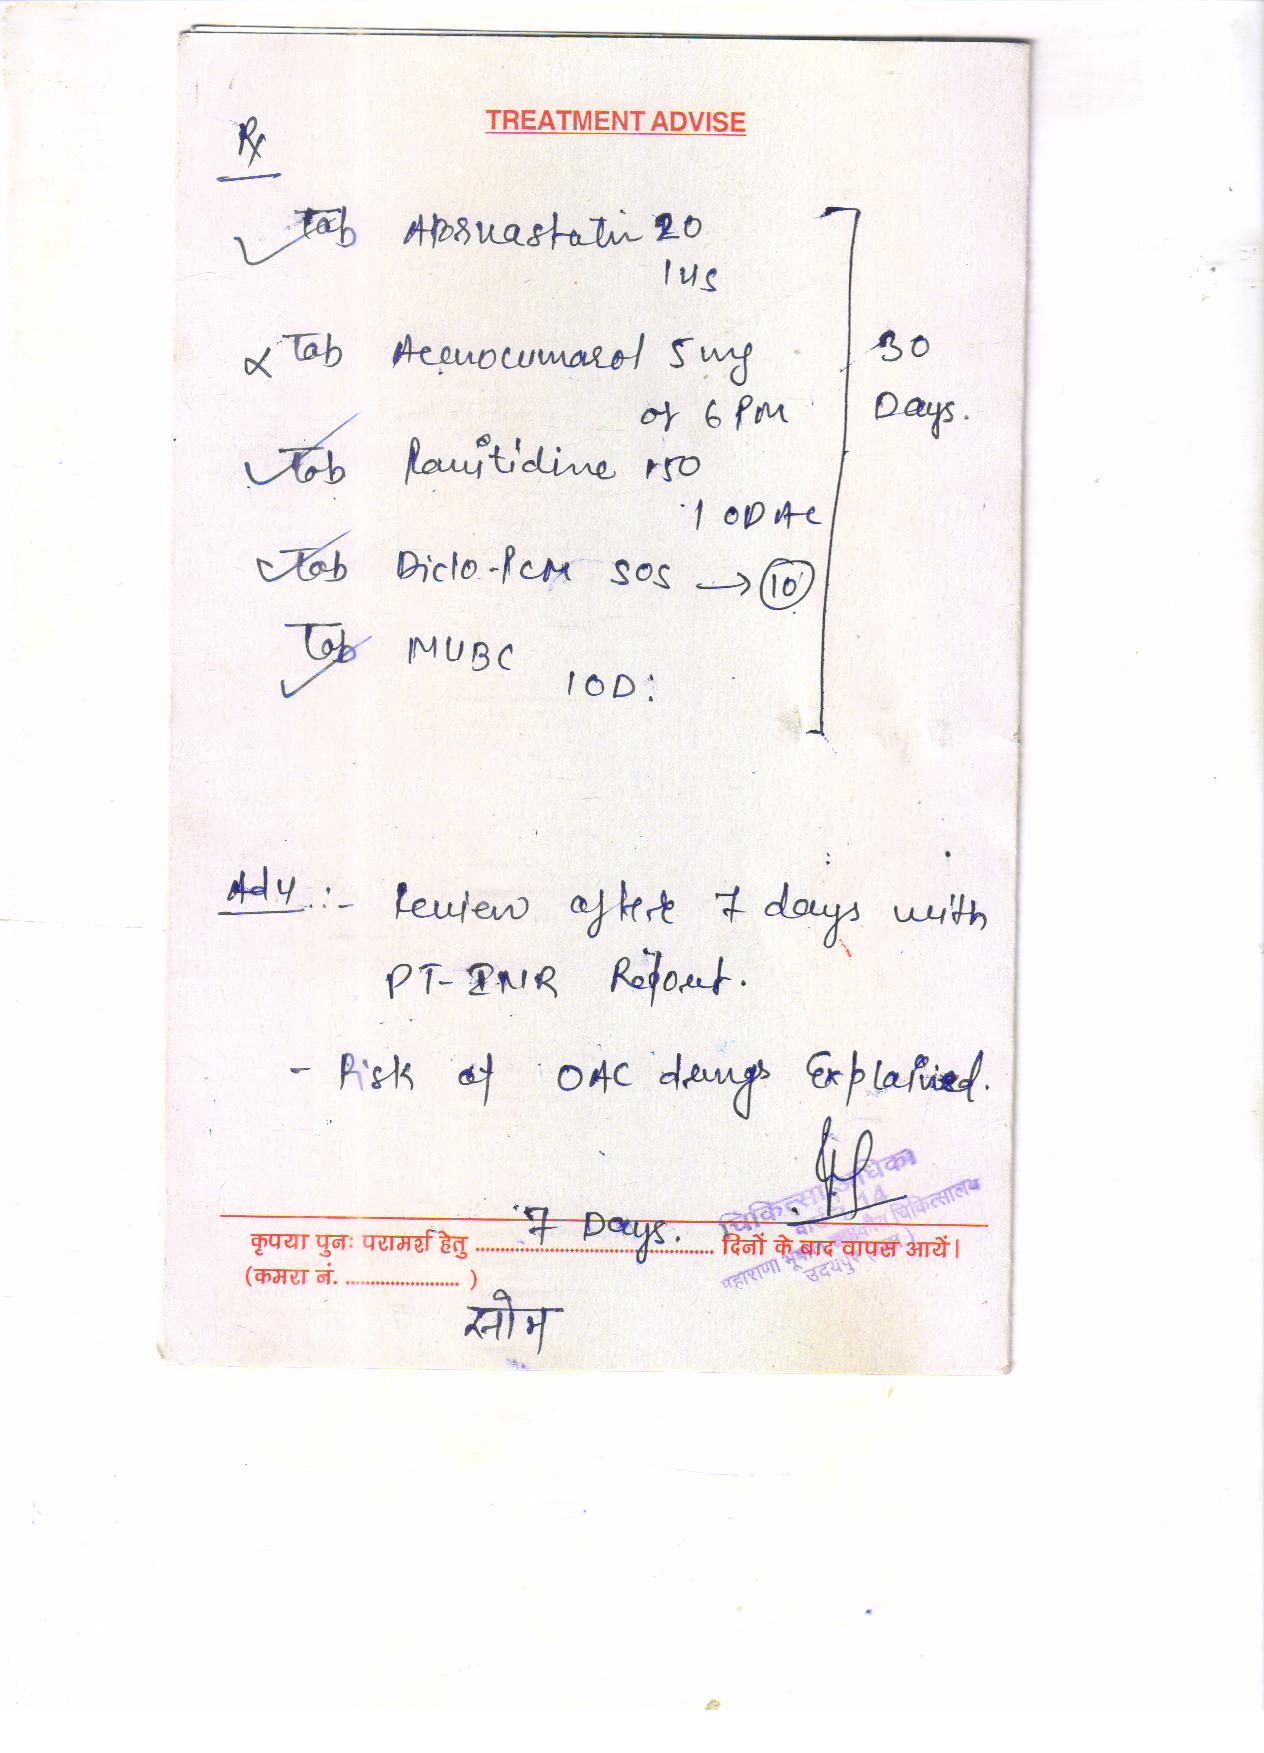 TREATMENT ADVISE
Rx
Tab Atorvastatin 20
1 HS
Tab Acenocumarol 5 mg
at 6 PM
30
Days.
Tab Ranitidine 150
1 OD AC
Tab Diclo-PCM SOS → 10
Tab MVBC
1 OD
Adv :- Review after 7 days with
PT-INR Report.
- Risk of OAC drugs Explained.
चिकित्सा अधिकारी
7 Days.
कृपया पुनः परामर्श हेतु ........................................ दिनों के बाद वापस आयें।
महाराणा भूपाल चिकित्सालय
उदयपुर
(कमरा नं. ...................... )
सोम